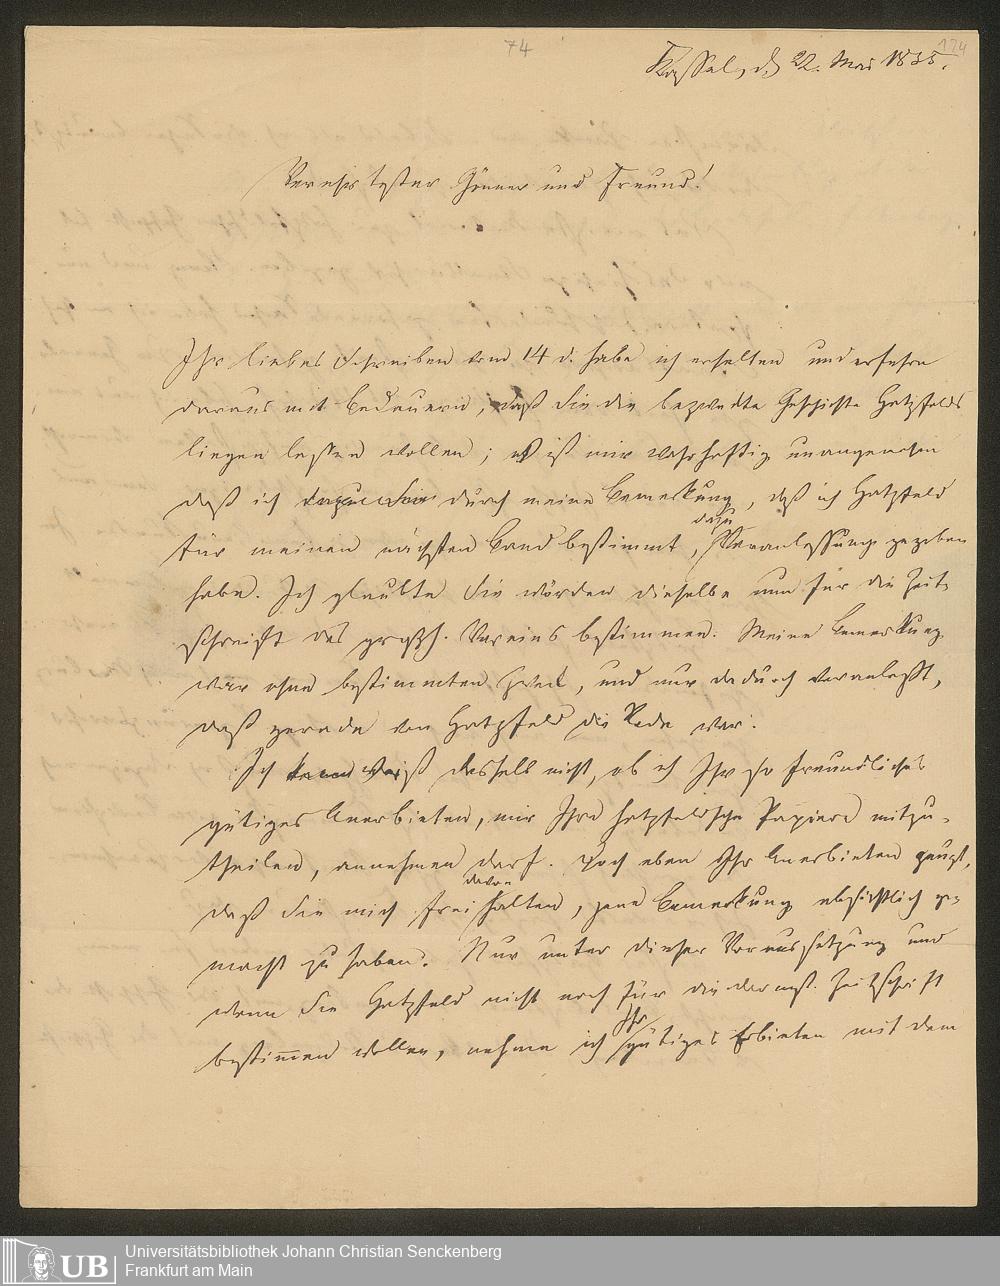 74
124
Kassel, d. 22. Mai 1835.
Verehrtester Gönner und Freund!
Ihr liebes Schreiben vom 14 d. habe ich erhalten und erfahre
daraus mit Bedauern, daß Sie die bezweckte Geschichte Hatzfelds
liegen lassen wollen; es ist mir wahrhaftig unangenehm
daß ich durch meine Bemerkung, daß ich Hatzfeld
für meinen nächsten Band bestimmt, dazu Veranlassung gegeben
habe. Ich glaubte Sie würden dieselbe nun für die Zeit-
schrift des großh. Vereins bestimmen. Meine Bemerkung
war ohne bestimmten Zweck, und nur dadurch veranlaßt,
daß gerade von Hatzfeld die Rede war.
Ich weiß deshalb nicht, ob ich Ihr so freundliches
gütiges Anerbieten, mir Ihre hatzfeldsche Papiere mitzu-
theilen, annehmen darf. Doch eben Ihr Anerbieten zeugt,
daß Sie mich frei davon halten, jene Bemerkung absichtlich ge-
macht zu haben. Nur unter dieser Voraussetzung und
wenn Sie Hatzfeld nicht noch für die darmst. Zeitschrift
bestimmen wollen, nehme ich Ihr gütiges Erbieten mit dem
UB
Universitätsbibliothek Johann Christian Senckenberg
Frankfurt am Main